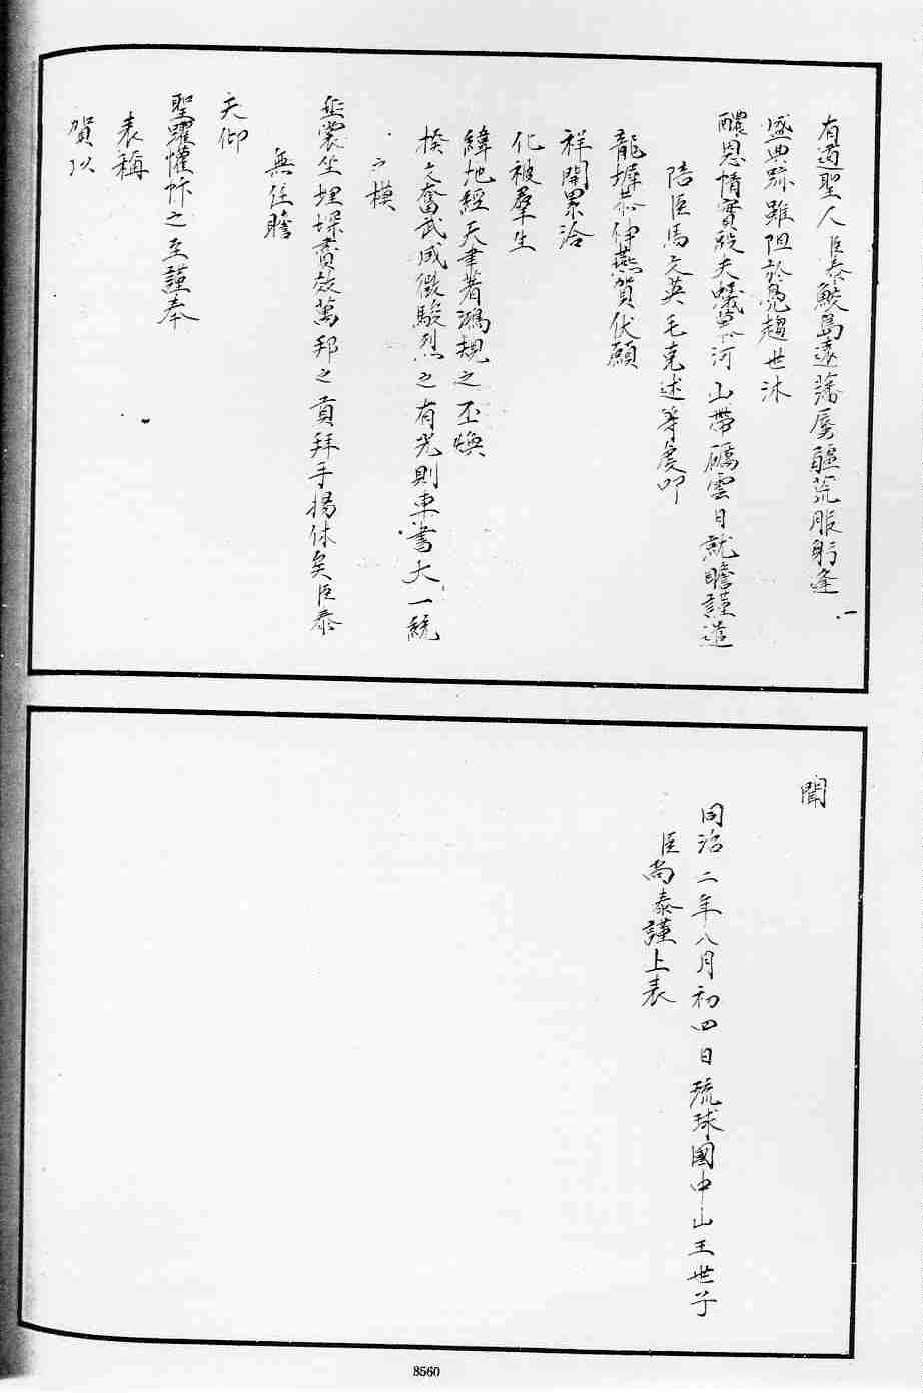 有道聖人臣泰鮫島遠藩蜃疆荒服躬逢
盛典跡雖阻於鳧趨世沐
醲恩情實殷夫蟻慕河山帶礪雲日就瞻謹遣
陪臣馬文英毛克述等虔叩
龍墀恭伸燕賀伏願
祥開累洽
化被羣生
緯地經天聿著鴻規之丕煥
揆文奮武咸徵駿烈之有光則車書大一統
之模
垂裳坐理琛賚效萬邦之貢拜手揚休矣臣泰
無任瞻
天仰
聖躍懽忭之至謹奉
表稱
賀以
聞
同治二年八月初四日琉球國中山王世子
臣尚泰謹上表
8560